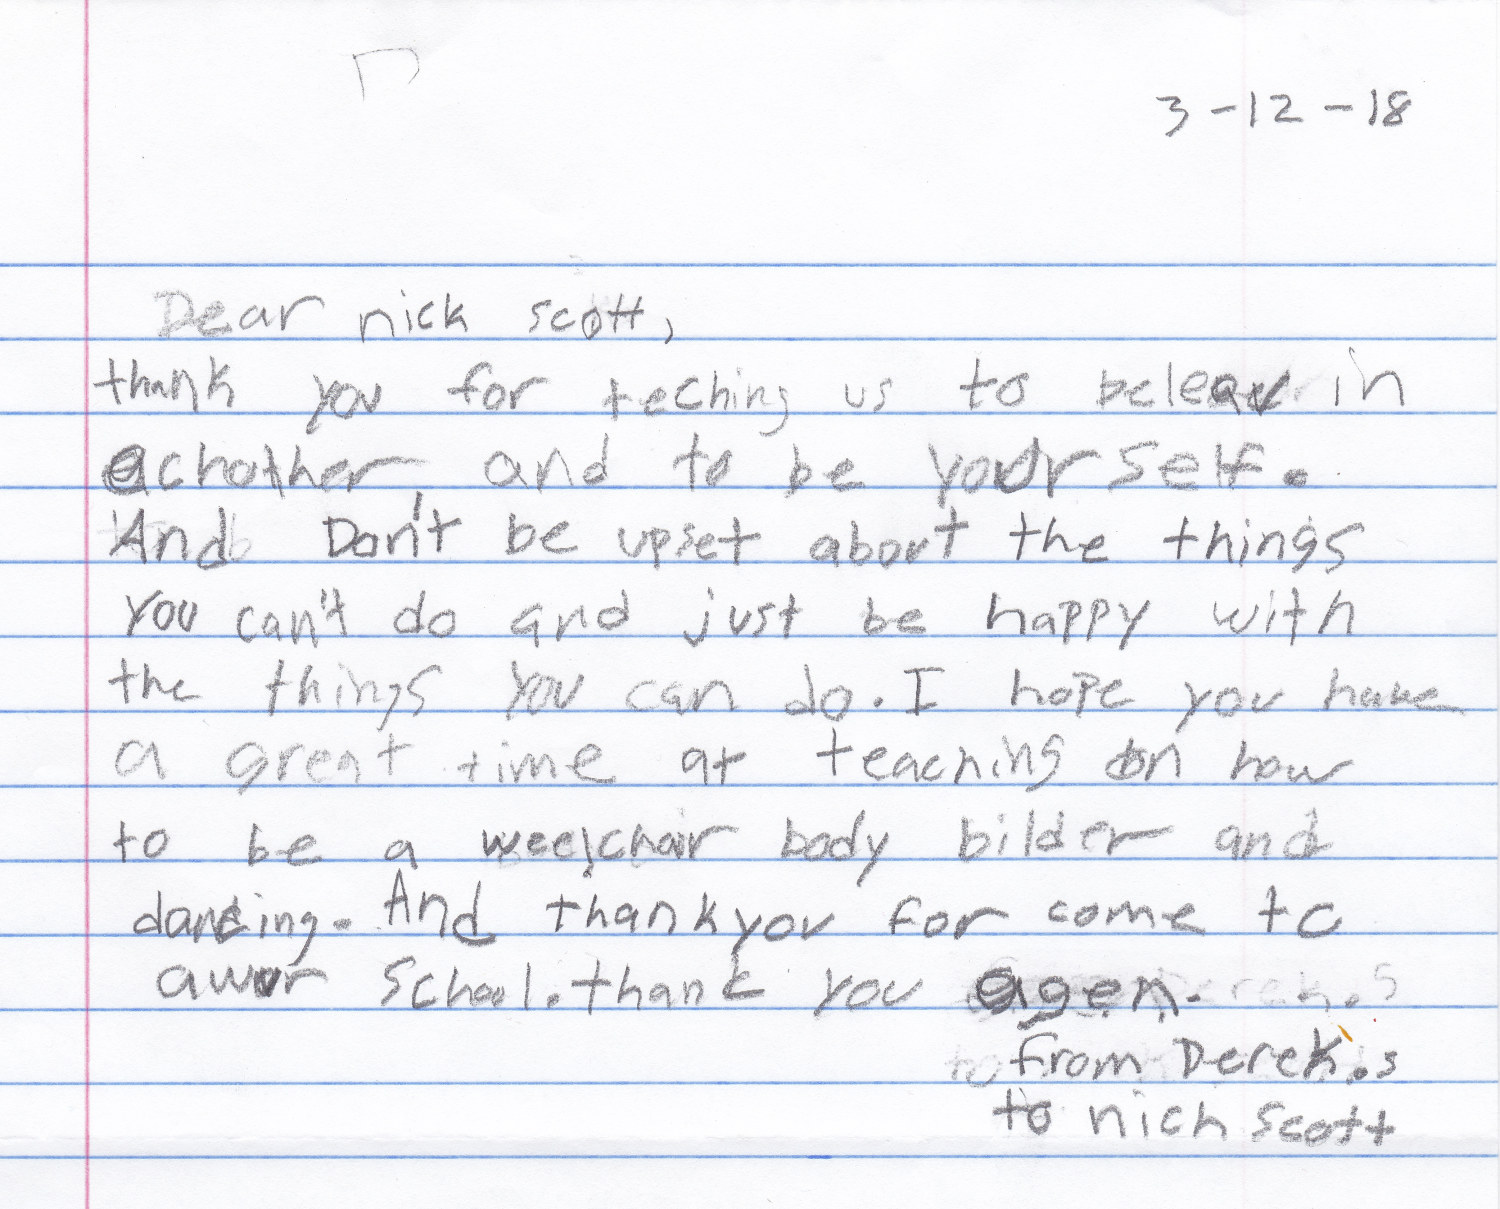 3-12-18
Dear nick scott,
thank you for teching us to beleav in
eachother, and to be your self.
And Don't be upset about the things
you can't do and just be happy with
the things you can do. I hope you have
a great time at teaching on how
to be a weelchair body bilder and
dancing. And thankyou for come to
awur school. thank you agen.
from Derek.s
to nich scott